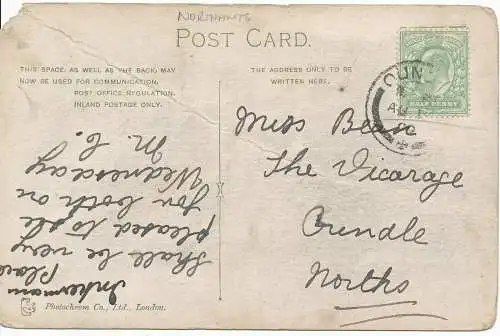 NORTHANTS
POST CARD.
THIS SPACE, AS WELL AS THE BACK, MAY
NOW BE USED FOR COMMUNICATION.
POST OFFICE REGULATION.
INLAND POSTAGE ONLY.
THE ADDRESS ONLY TO BE
WRITTEN HERE.
HALF PENNY
OUN
AU
Miss
The Vicarage
Oundle
Norths
Inkerman
Place
Shall be very
pleased to see
you both on
Wednesday
M. C.
Photochrom Co., Ltd., London.